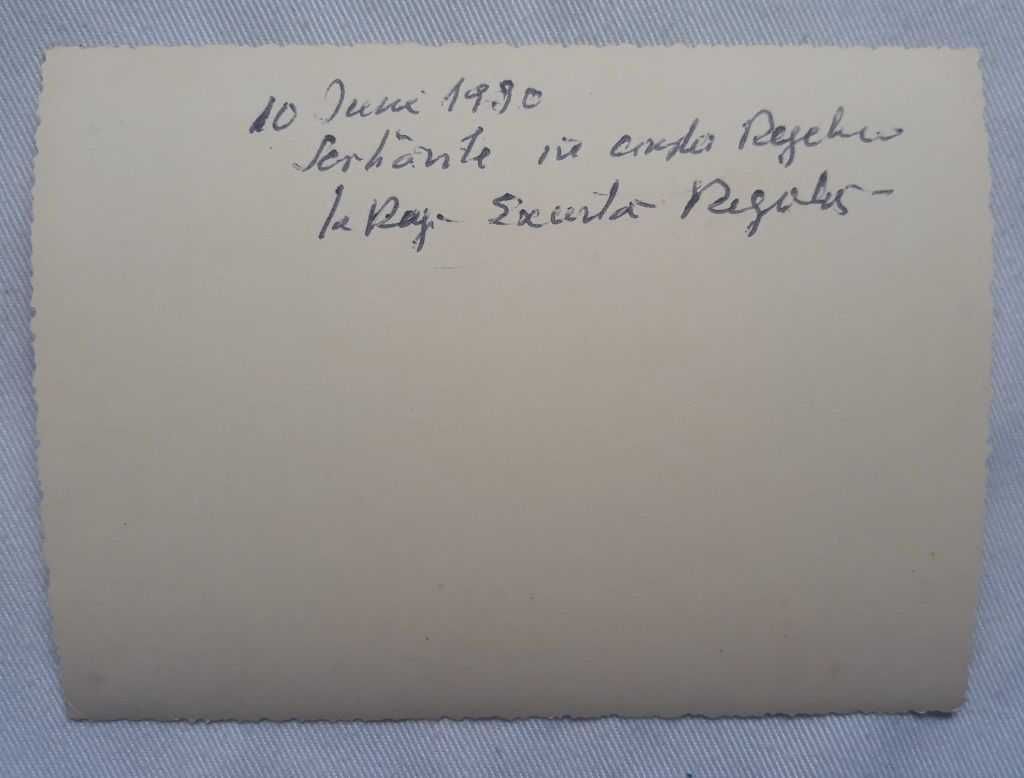 10 Juni 1930
Serbările în cinstea Regelui
la Reg. Escorta Regală -